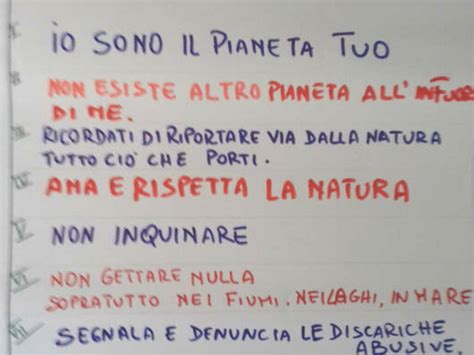 I IO SONO IL PIANETA TUO
II NON ESISTE ALTRO PIANETA ALL'INFUORI
DI ME.
III RICORDATI DI RIPORTARE VIA DALLA NATURA
TUTTO CIÒ CHE PORTI.
IV AMA E RISPETTA LA NATURA
V NON INQUINARE
VI NON GETTARE NULLA
SOPRATUTTO NEI FIUMI, NEI LAGHI, IN MARE
VII SEGNALA E DENUNCIA LE DISCARICHE
ABUSIVE.